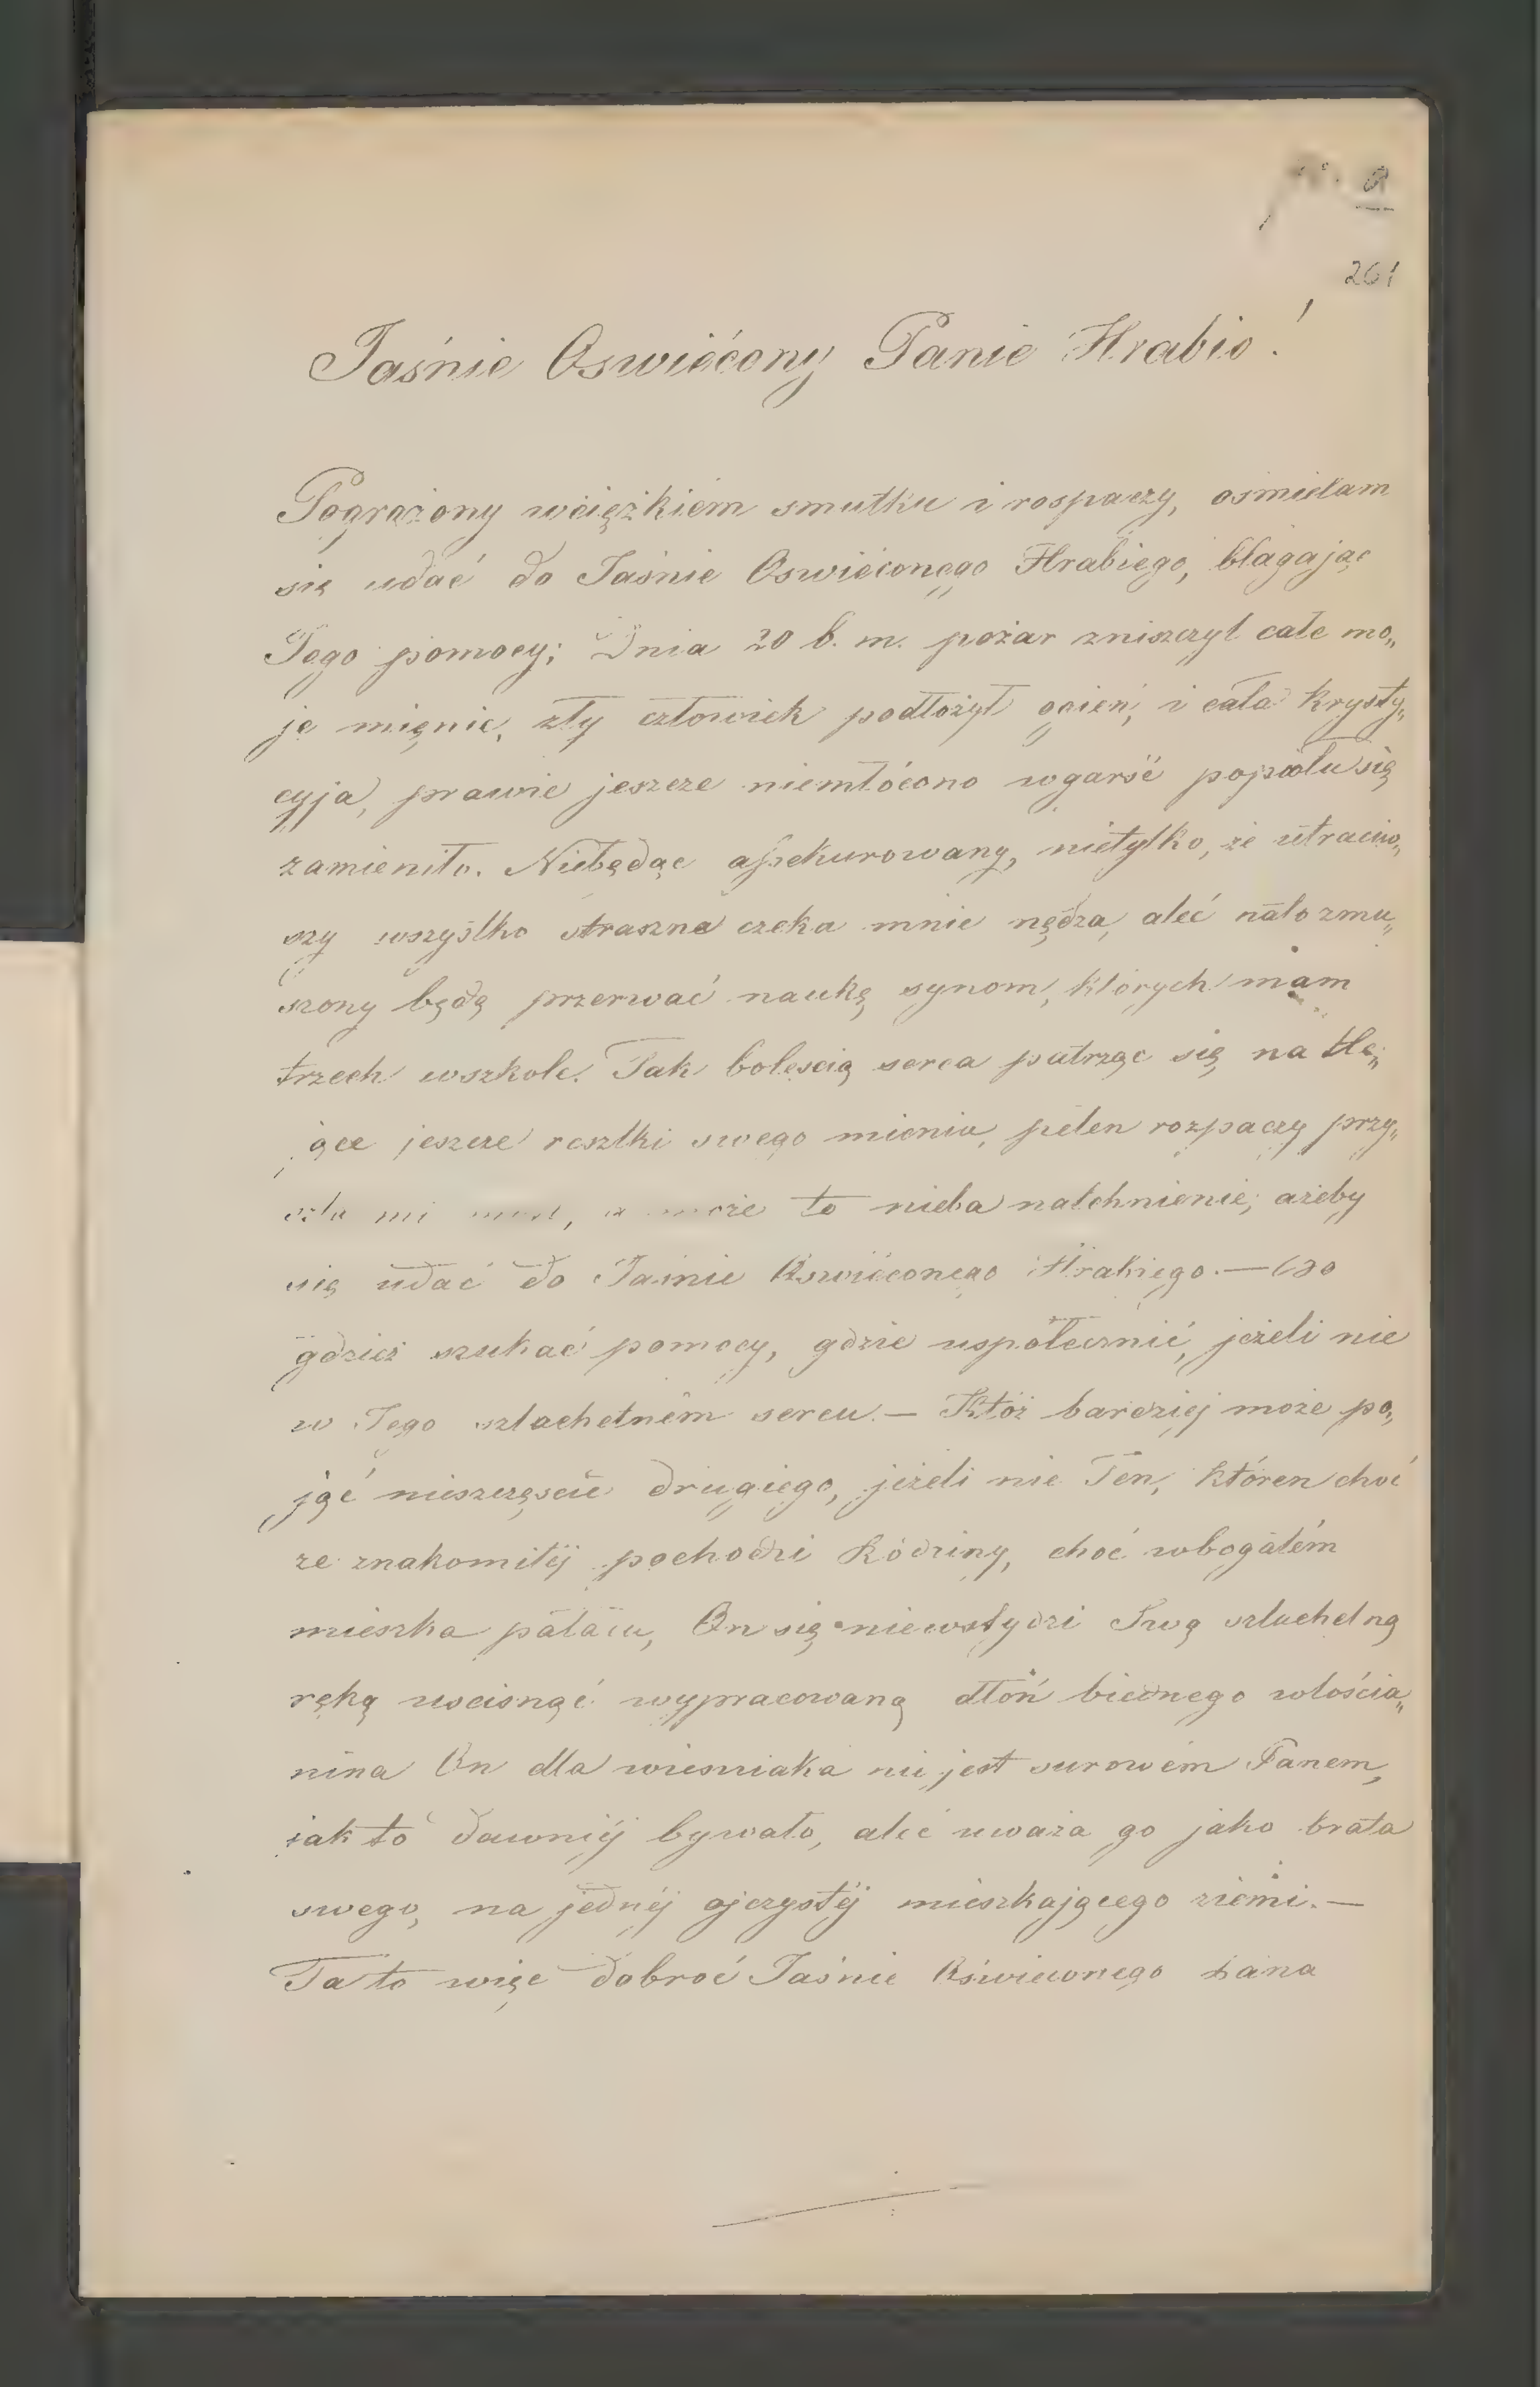 261
Jaśnie Oswiécony Panie Hrabio!
Pogrążony wcięzkiém smutku i rospaczy, osmielam
się udać do Jaśnie Oswiéconego Hrabiego, błagając
Jego pomocy; Dnia 20 b. m. pożar zniszczył całe mo„
je mięnie, zły człowiek podłożył ogień, i cała krysty„
cyja, prawie jeszcze niemłócono wgarść popiołu się
zamieniło. Niebędąc assekurowany, nietylko, że utraciw„
szy wszystko straszna czeka mnie nędza, aleć nato zmu„
szony będę przerwać naukę synom, których mam
trzech wszkole. Tak bolęscią serca patrząc się na tle„
jące jeszcze resztki swego mienia, pełen rozpaczy przy„
szła mi myśl, a może to nieba natchnienie, ażeby
się udać do Jaśnie Oswiéconego Hrabiego. — Bo
gdzież szukać pomocy, gdzie uspółecznić, jeżeli nie
w Jego szlachetném sercu. — Któż bardziej może po„
jąć nieszczęscie drugiego, jeżeli nie Ten, któren choć
ze znakomitéj pochodzi Rodziny, choć wbogatém
mieszka pałacu, On się niewstydzi Swą szlachetną
ręką uscisnąć wypracowaną dłoń biednego włościa„
nina On dla wiesniaka nie jest surowém Panem,
jak to dawniéj bywało, aleć uważa go jako brata
swego, na jednéj ojczystéj mieszkającego ziemi. —
Ta to więc dobroć Jaśnie Oświeconego Pana